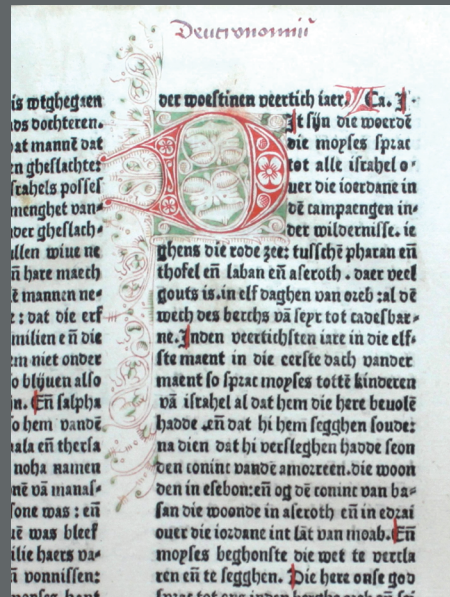 Deutronomiū
is weghegaen
ds dochteren.
at mannē dat
n gheslachte
srahels posses
menghet van
der gheslach-
llen wiue ne
ñ hare maech
ē mannen ne-
: dat die erf
milien eñ die
m niet onder
o blijuen also
n. Eñ salpha
o hem vandē
ala eñ thersa
noha namen
nē vā manas-
sone was : eñ
uē was bleef
ilie haers va-
vonnissen:
der woestinen veertich iaer. Ca. I
Dit sijn die woerdē
die moyses sprac
tot alle israhel o-
uer die iordane in
dē campaengen in-
der wildernisse. ie
ghens die rode zee: tusschē pharan eñ
thofel eñ laban eñ aseroth . daer veel
gouts is. in elf daghen van oreb : al dē
wech des berchs vā seyr tot cadesbar-
ne. Inden veertichsten iare in die elf-
ste maent in die eerste dach vander
maent so sprac moyses tottē kinderen
vā israhel al dat hem die here beuolē
hadde . eñ dat hi hem segghen soude:
na dien dat hi versleghen hadde seon
den coninc vandē amorreen. die woon
den in esebon: eñ og dē coninc van ba-
san die woonde in aseroth eñ in edrai
ouer die iordane int lāt van moab. Eñ
moyses beghonste die wet te vercla
ren eñ te segghen. Die here onse god